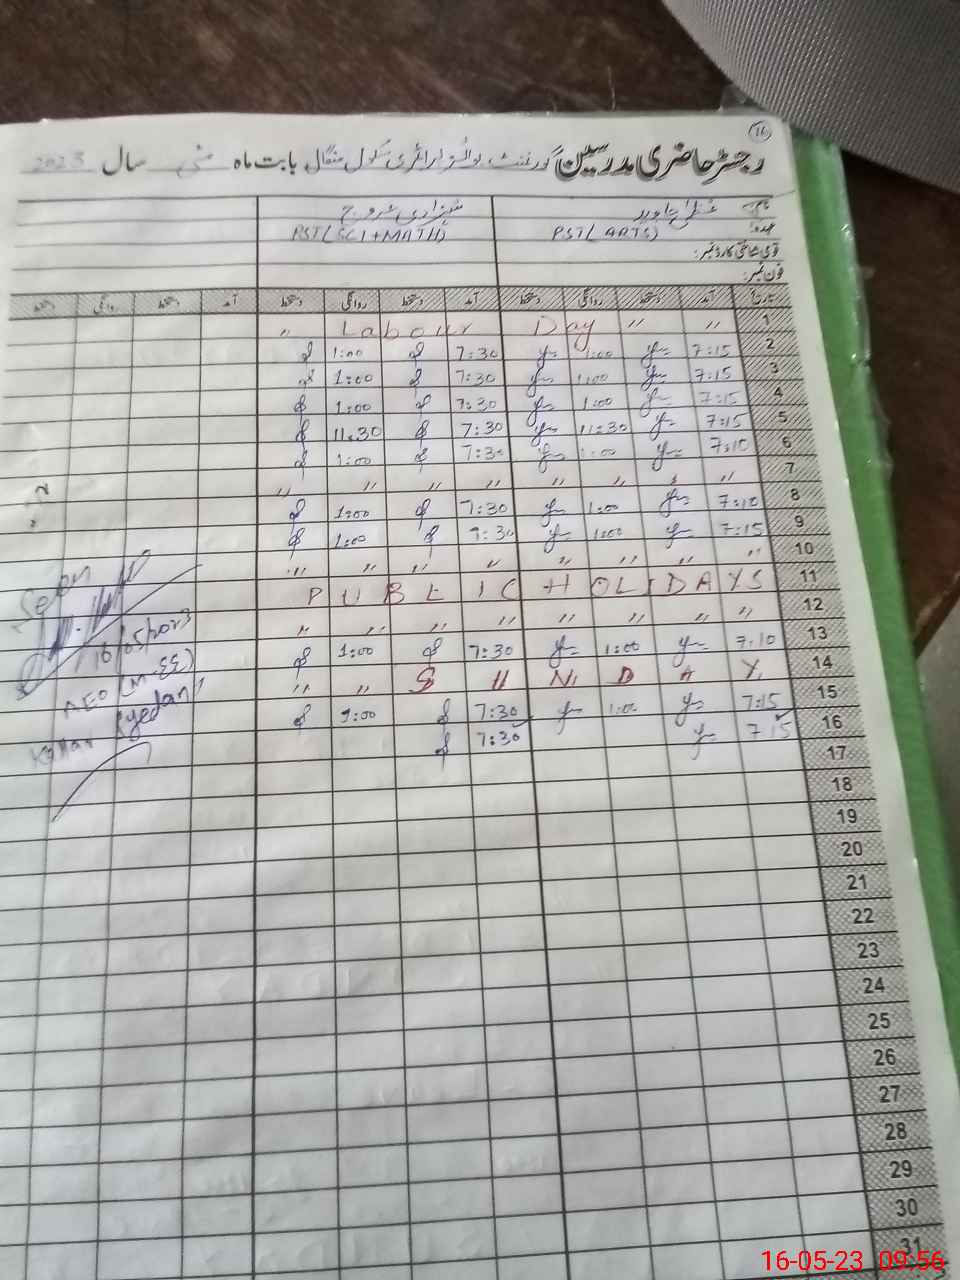 16
رجسٹر حاضری مدرسین گورنمنٹ بوائز پرائمری سکول منگال بابت ماہ مئی سال 2023
نام:
شہزادی عروج
عہدہ: PST( ARTS) PST(SCI+MATH)
قومی شناختی کارڈ نمبر:
فون نمبر:
تاریخ آمد دستخط روانگی دستخط آمد دستخط روانگی دستخط آمد دستخط روانگی دستخط
1 〃 〃 Labour Day 〃
2 7:15 1:00 7:30 1:00
3 7:15 1:00 7:30 1:00
4 7:15 1:00 7:30 1:00
5 7:15 11:30 7:30 11.30
6 7:10 1:00 7:30 1:00
7 〃 〃 〃 〃 〃 〃 〃 〃
8 7:10 1:00 7:30 1:00
9 7:15 1:00 7:30 1:00
10 〃 〃 〃 〃 〃 〃 〃 〃
11 PUBLIC HOLIDAYS
12 〃 〃 〃 〃 〃 〃 〃 〃
13 7:10 1:00 7:30 1:00
14 〃 〃 SUNDAY
15 7:15 1:00 7:30 1:00
16 7:15 7:30
17
18
19
20
21
22
23
24
25
26
27
28
29
30
31
Seen
16/05/2023
AEO (M-EE)
Kallar Syedan
16-05-23 09:56